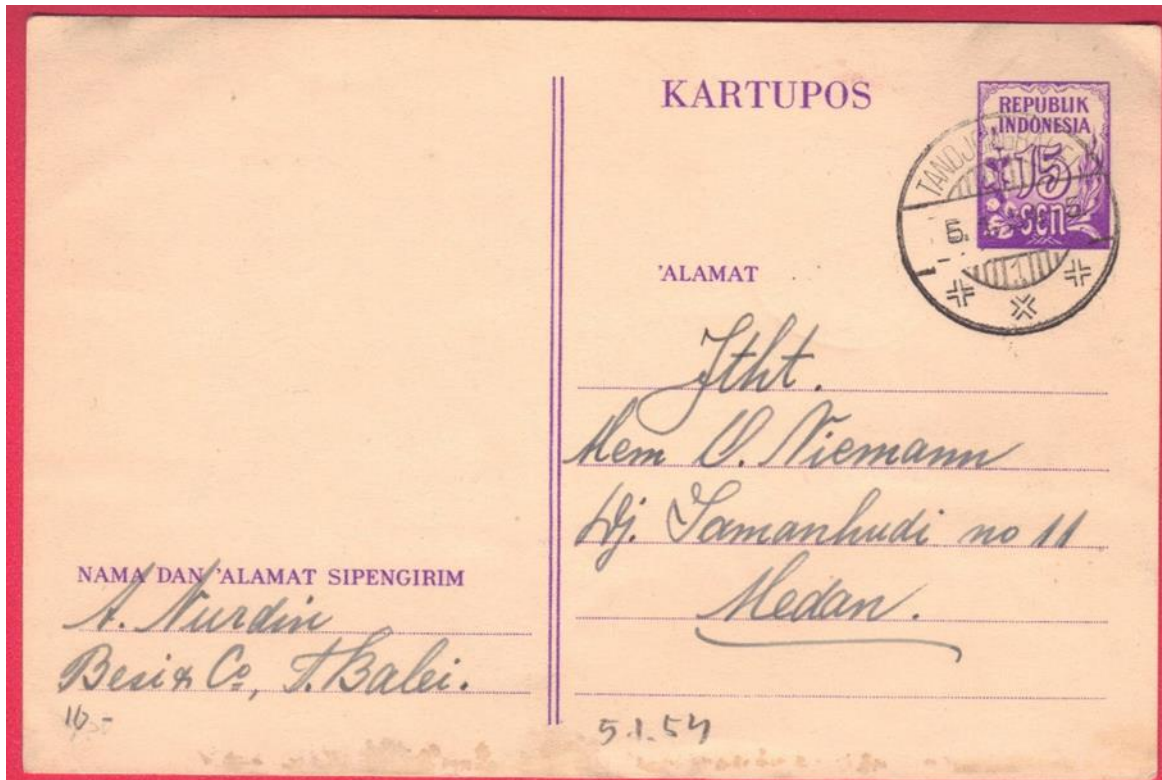 KARTUPOS
REPUBLIK
INDONESIA
15
sen
TANDJONGBALEI
5.
1
'ALAMAT
Jtht.
Mem O. Niemann
Dj. Samanhudi no 11
Medan.
NAMA DAN 'ALAMAT SIPENGIRIM
A. Nurdin
Besi & Co, T. Balei.
5.1.54